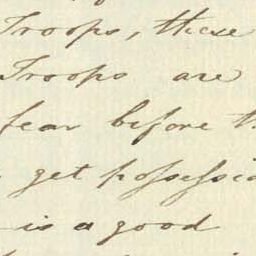 Troops, these
Troops are
fear before th
get possessio
is a good